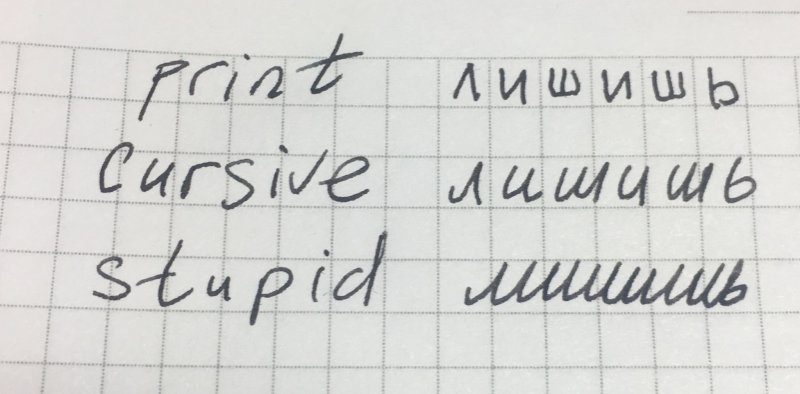 print лишишь
cursive лишишь
stupid лишишь